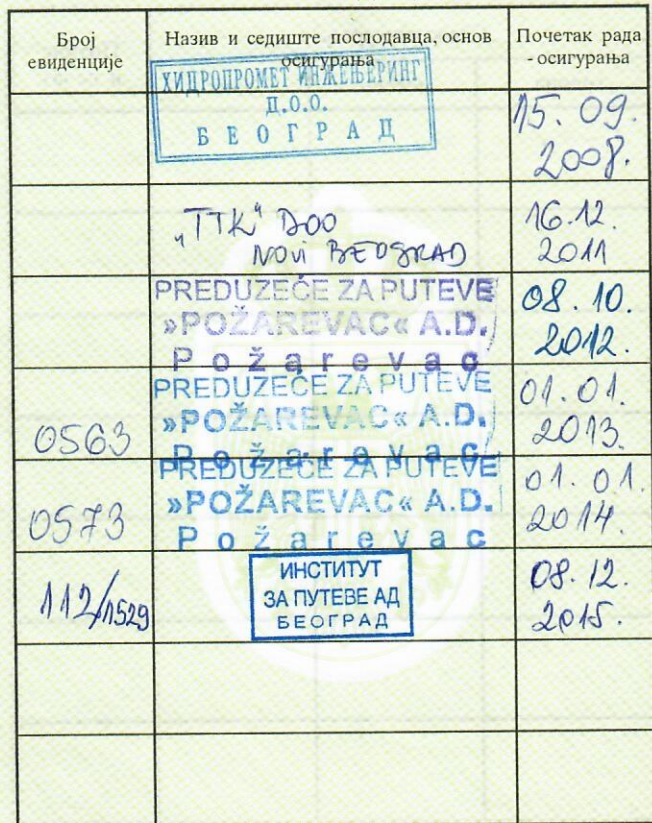 Број
евиденције
Назив и седиште послодавца, основ
осигурања
Почетак рада
- осигурања
ХИДРОПРОМЕТ ИНЖЕЊЕРИНГ
Д.О.О.
БЕОГРАД
15. 09.
2008.
"ТТК" DOO
NOVI BEOGRAD
16.12.
2011
PREDUZEĆE ZA PUTEVE
»POŽAREVAC« A.D.
Požarevac
08. 10.
2012.
0563
PREDUZEĆE ZA PUTEVE
»POŽAREVAC« A.D.
Požarevac
01. 01.
2013.
0573
PREDUZEĆE ZA PUTEVE
»POŽAREVAC« A.D.
Požarevac
01. 01.
2014.
112/1529
ИНСТИТУТ
ЗА ПУТЕВЕ АД
БЕОГРАД
08. 12.
2015.